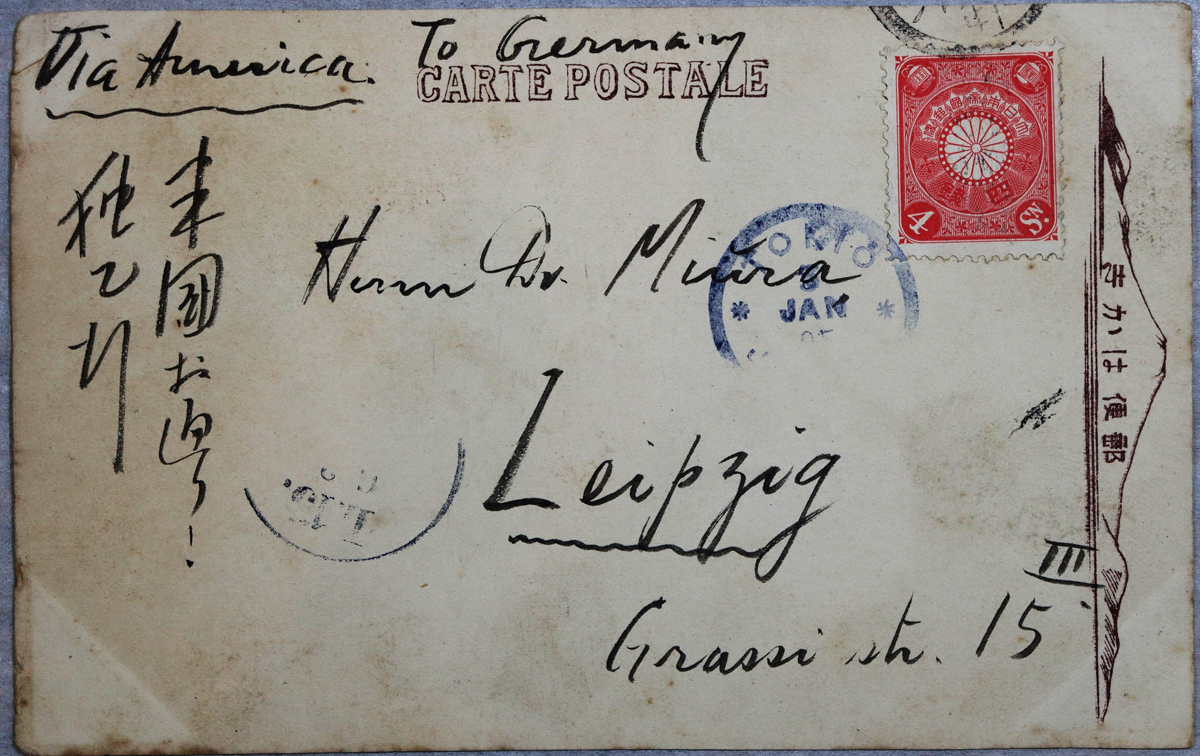 Via America.
To Germany
CARTE POSTALE
米國お過り!
独乙行
Herrn Dr. Miura,
Leipzig
Grassi str. 15 III
大日本帝國郵便
4
Sn.
TOKIO
JAN
郵便はかき